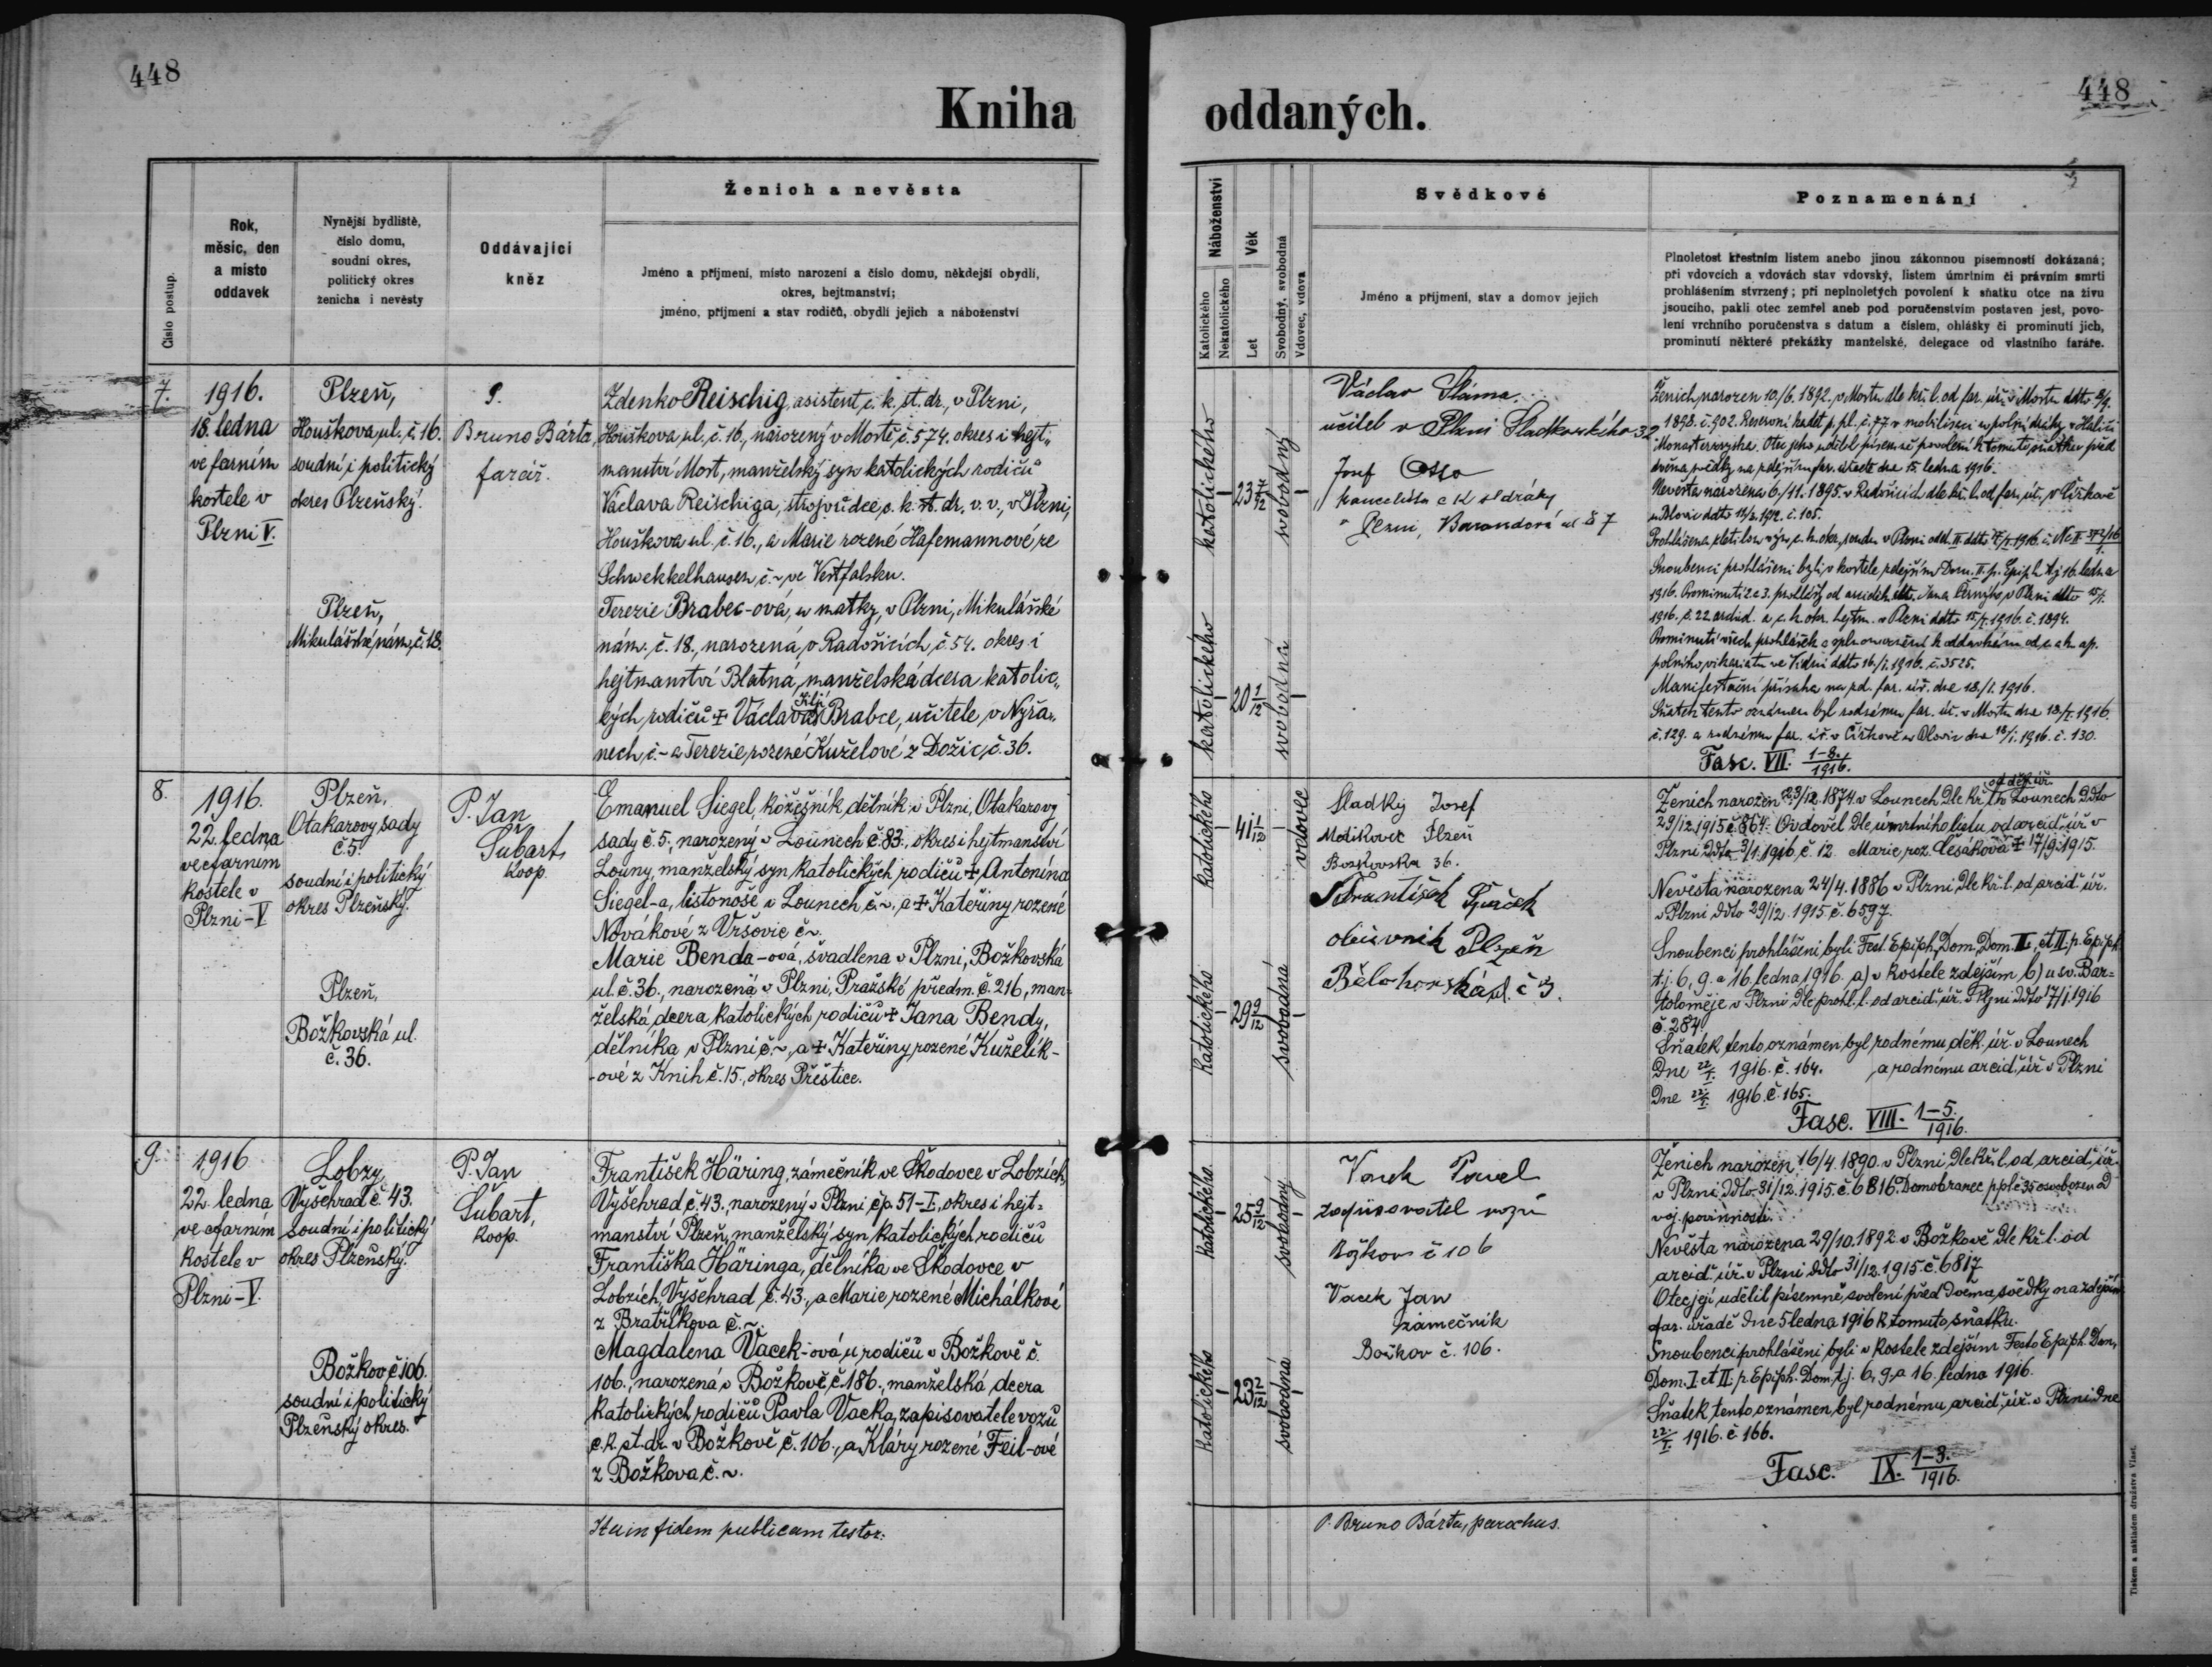 448
448
Kniha oddaných.
Číslo postup.
Rok,
měsíc, den
a místo
oddavek
Nynější bydliště,
číslo domu,
soudní okres,
politický okres
ženicha i nevěsty
Oddávající
kněz
Ženich a nevěsta
Jméno a příjmení, místo narození a číslo domu, někdejší obydlí,
okres, hejtmanství;
jméno, příjmení a stav rodičů, obydlí jejich a náboženství
Náboženství
Katolického
Nekatolického
Věk
Let
Svobodný, svobodná
Vdovec, vdova
Svědkové
Jméno a příjmení, stav a domov jejich
Poznamenání
Plnoletost křestním listem anebo jinou zákonnou písemností dokázaná;
při vdovcích a vdovách stav vdovský, listem úmrtním či právním smrti
prohlášením stvrzený; při neplnoletých povolení k sňatku otce na živu
jsoucího, pakli otec zemřel aneb pod poručenstvím postaven jest, povo-
lení vrchního poručenstva s datum a číslem, ohlášky či prominutí jich,
prominutí některé překážky manželské, delegace od vlastního faráře.
7.
1916.
18. ledna
ve farním
kostele v
Plzni V.
Plzeň,
Houškova ul. č. 16.
soudní i politický
okres Plzeňský.
Plzeň,
Mikulášské nám. č. 18.
P.
Bruno Bárta,
farář.
Zdenko Reischig, asistent c. k. st. dr., v Plzni,
Houškova ul. č. 16, narozený v Mostě č. 574. okres i hejt„
manství Most, manželský syn katolických rodičů
Václava Reischiga, strojvůdce, c. k. st. dr. v. v., v Plzni,
Houškova ul. č. 16., a Marie rozené Hafemannové, ze
Schwekkelhausen č. ~ ve Vestfalsku.
Terezie Brabec-ová, u matky, v Plzni, Mikulášské
nám. č. 18., narozená v Radošicích, č. 54. okres i
hejtmanství Blatná, manželská dcera katolic„
kých rodičů + Václava Brabce, učitele, v Nýřa„
nech, č. - a Terezie, rozené Kuželové z Dožic, č. 36.
katolického
23 7/12
svobodný
katolického
20 1/12
svobodná
Václav Sláma
učitel v Plzni Sladkovského 32
Josef
kancelista c k st dráhy
v Plzni, ul č 7
Ženich, narozen 10/6. 1892. v Mostu dle kř. l. od far. úř. v Mostu ddto
1898. č. 902. Reservní kadet p. pl. č. 77 v mobilisaci u polní dráhy v Haliči
Otec jeho udělil písemně povolení k tomuto sňatku před
dvěma svědky na zdejším far. úřadě dne 15. ledna 1916.
Nevěsta narozena 6/11. 1895. v Radošicích dle kř. l. od far. úř., v Čížkově
u Blovic ddto č. 105.
Snoubenci prohlášeni byli v kostele zdejším Dom. II. p. Epiph. t. j. 16. ledna
1916. Prominutí 2 a 3. prohlášky
1916. č. 22 a c. k. okr. hejtm. v Plzni ddto 1916. č. 1894.
polního vikariátu ve Vídni ddto 16/1. 1916. č. 3525.
Manifestační přísaha na zd. far. úř. dne 18/1. 1916.
Sňatek tento oznámen byl rodnému far. úř. v Mostu dne 18/I. 1916.
č. 129. a rodnému far. úř. v Čížkově u Blovic dne 18/I. 1916. č. 130.
Fasc. VII. 1-8./1916.
8.
1916.
22. ledna
ve farním
kostele v
Plzni-V
Plzeň,
Otakarovy sady
č. 5.
soudní i politický
okres Plzeňský.
Plzeň,
Božkovská ul.
č. 36.
P. Jan
Šubart,
koop.
Emanuel Siegel, kožešník, dělník v Plzni, Otakarovy
sady č. 5., narozený v Lounech č. 83., okres i hejtmanství
Louny, manželský syn katolických rodičů + Antonína
Siegel-a, listonoše v Lounech č. ~., a + Kateřiny rozené
Novákové z Vršovic č ~.
Marie Benda-ová, švadlena v Plzni, Božkovská
ul. č. 36., narozená v Plzni, Pražské předm. č. 216, man=
želská dcera katolických rodičů + Jana Bendy,
dělníka v Plzni č. ~, a + Kateřiny rozené Kuželík-
-ové z Knih č. 15., okres Přeštice.
katolického
41 1/12
vdovec
katolického
29 9/12
svobodná
Sladký Josef
Plzeň
Božkovska 36.
František
obuvník Plzeň
Bělohorská ul. č 3.
Ženich narozen 23/12. 1874. v Lounech dle kř. l. od děk. úř. v Lounech ddto
29/12. 1915 č. 864. Ovdověl dle úmrtního listu od arcid. úř. v
Plzni ddto 3/1. 1916. č. 12. Marie, roz. Čésáková + 17/9. 1915.
Nevěsta narozena 24/4. 1886 v Plzni, dle kř. l. od arcid. úř.
v Plzni ddto 29/12. 1915. č. 6597.
Snoubenci prohlášeni byli Fest. Epiph., Dom. Dom. I., et II. p. Epiph.
t. j. 6., 9. a 16. ledna 1916. a) v kostele zdejším b) u sv. Bar=
toloměje v Plzni dle prohl. l. od arcid. úř. v Plzni ddto 17/1. 1916
č. 284.
Sňatek tento oznámen byl rodnému děk. úř. v Lounech
Dne 22/I. 1916. č. 164. a rodnému arcid. úř. v Plzni
Dne 22/I. 1916. č. 165.
Fasc. VIII. 1-5./1916.
9.
1916
22. ledna
ve farním
kostele v
Plzni-V.
Lobzy
Vyšehrad č 43.
soudní i politický
okres Plzeňský.
Božkov č 106.
soudní i politický
Plzeňský okres.
P. Jan
Šubart,
koop.
František Häring, zámečník ve Škodovce v Lobzích,
Vyšehrad č. 43., narozený v Plzni čp. 51-I., okres i hejt=
manství Plzeň, manželský syn katolických rodičů
Františka Häringa, dělníka ve Škodovce v
Lobzích, Vyšehrad č. 43., a Marie, rozené Michálkové
z Bratříkova č. ~.
Magdalena Vacek-ová, u rodičů v Božkově č.
106., narozená v Božkově č. 186., manželská dcera
katolických rodičů Pavla Vacka, zapisovatele vozů
c. k. st. dr. v Božkově č. 106., a Kláry, rozené Feil-ové
z Božkova č. ~.
katolického
svobodný
katolického
23 2/12
svobodná
Vacek Pavel
zapisovatel vozů
Božkov č 106
Vacek Jan
zámečník
Božkov č. 106.
Ženich narozen 16/4. 1890. v Plzni, dle kř. l. od arcid. úř.
v Plzni, ddto. 31/12. 1915. č. 6816. Domobranec p. pl. č 35 osvobozen od
voj. povinnosti.
Nevěsta narozena 29/10. 1892. v Božkově dle kř. l. od
arcid. úř. v Plzni ddto 31/12. 1915. č. 6817
Otec její udělil písemně svolení před dvěma svědky na zdejším
far. úřadě dne 5 ledna 1916 k tomuto sňatku.
Snoubenci prohlášeni byli v kostele zdejším Festo Epiph. Dom.,
Dom. I. et II. p. Epiph. Dom. t. j. 6., 9. a 16. ledna 1916.
Sňatek tento oznámen byl rodnému arcid. úř. v Plzni dne
22./I. 1916. č 166.
Fasc. IX. 1-3./1916.
Ita in fidem publicam testor:
P. Bruno Bárta, parochus.
Tiskem a nákladem družstva Vlast.